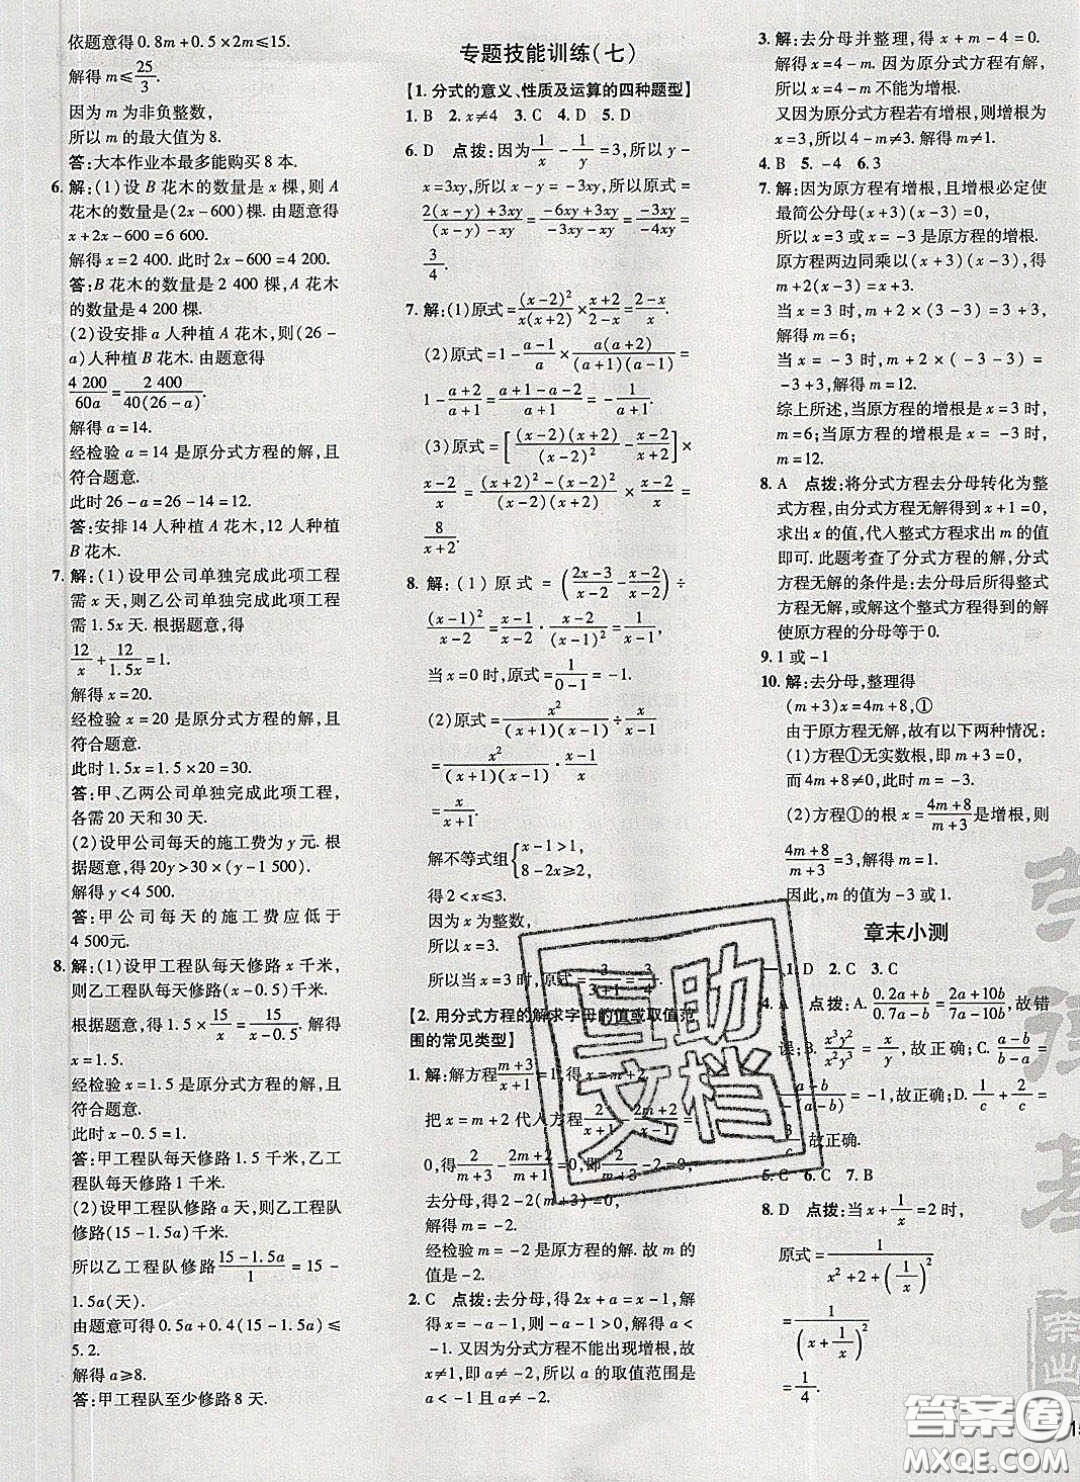 依题意得0.8m+0.5×2m≤15.
解得m≤25/3.
因为m为非负整数,
所以m的最大值为8.
答:大本作业本最多能购买8本.
6. 解:(1)设B花木的数量是x棵,则A
花木的数量是(2x-600)棵. 由题意得
x+2x-600=6 600.
解得x=2 400. 此时2x-600=4 200.
答:B花木的数量是2 400棵,A花木
的数量是4 200棵.
(2)设安排a人种植A花木,则(26-
a)人种植B花木. 由题意得
4 200/60a=2 400/40(26-a).
解得a=14.
经检验a=14是原分式方程的解,且
符合题意.
此时26-a=26-14=12.
答:安排14人种植A花木,12人种植
B花木.
7. 解:(1)设甲公司单独完成此项工程
需x天,则乙公司单独完成此项工程
需1.5x天. 根据题意,得
12/x+12/1.5x=1.
解得x=20.
经检验x=20是原分式方程的解,且
符合题意.
此时1.5x=1.5×20=30.
答:甲、乙两公司单独完成此项工程,
各需20天和30天.
(2)设甲公司每天的施工费为y元. 根
据题意,得20y>30×(y-1 500).
解得y<4 500.
答:甲公司每天的施工费应低于
4 500元.
8. 解:(1)设甲工程队每天修路x千米,
则乙工程队每天修路(x-0.5)千米.
根据题意,得1.5×15/x=15/(x-0.5).解得
x=1.5.
经检验x=1.5是原分式方程的解,且
符合题意.
此时x-0.5=1.
答:甲工程队每天修路1.5千米,乙工
程队每天修路1千米.
(2)设甲工程队修路a天,则乙工程队
修路(15-1.5a)千米.
所以乙工程队修路(15-1.5a)/1=15-
1.5a(天).
由题意可得0.5a+0.4(15-1.5a)≤
5.2.
解得a≥8.
答:甲工程队至少修路8天.
专题技能训练(七)
【1. 分式的意义、性质及运算的四种题型】
1. B 2. x≠4 3. C 4. D 5. D
6. D 点拨:因为1/x-1/y=3,所以y-
x=3xy,所以x-y=-3xy,所以原式=
(2(x-y)+3xy)/((x-y)-xy)=(-6xy+3xy)/(-3xy-xy)=-3xy/-4xy=
3/4.
7. 解:(1)原式=(x-2)²/x(x+2)×(x+2)/(2-x)=(2-x)/x.
(2)原式=1-(a-1)/a×a(a+2)/(a+1)(a-1)=
1-(a+2)/(a+1)=(a+1-a-2)/(a+1)=-1/(a+1).
(3)原式=[(x-2)(x+2)/(x-2)²-(x-2)/(x+2)]×
(x-2)/x=(x-2)/x×8x/(x-2)(x+2)=
8/(x+2).
8. 解:(1)原式=((2x-3)/(x-2)-1)÷
(x-1)²/(x-2)=(x-1)/(x-2)·(x-2)/(x-1)²=1/(x-1),
当x=0时,原式=1/(0-1)=-1.
(2)原式=x²/(x+1)(x-1)÷x/(x-1)
=x²/(x+1)(x-1)·(x-1)/x
=x/(x+1).
解不等式组{x-1>1, 8-2x≥2,
得2<x≤3.
因为x为整数,
所以x=3.
所以当x=3时,原式=3/(3+1)=3/4.
【2. 用分式方程的解求字母的值或取值范
围的常见类型】
1. 解:解方程(m+3)/(x+1)=1,得x=m+2,
把x=m+2代入方程2/(x-1)-(m+2)/(x-1)=
0,得2/(m+1)-(2m+2)/(m+1)=0,即2/(m+1)-2=0,
去分母,得2-2(m+1)=0.
解得m=-2.
经检验m=-2是原方程的解. 故m的
值是-2.
2. C 点拨:去分母,得2x+a=x-1,解
得x=-a-1,所以-a-1>0,解得a<
-1. 又因为分式方程不能出现增根,
故x≠1,即a≠-2,所以a的取值范围
是a<-1且a≠-2.
3. 解:去分母并整理,得x+m-4=0.
解得x=4-m. 因为原分式方程有解,
所以x=4-m不能为增根.
又因为原分式方程若有增根,则增根
为x=3,所以4-m≠3. 解得m≠1.
4. B 5. -4 6. 3
7. 解:因为原方程有增根,且增根必定使
最简公分母(x+3)(x-3)=0,
所以x=3或x=-3是原方程的增根.
原方程两边同乘以(x+3)(x-3),得
m+2(x-3)=x+3.
当x=3时,m+2×(3-3)=3+3,
解得m=6;
当x=-3时,m+2×(-3-3)=
-3+3,解得m=12.
综上所述,当原方程的增根是x=3时,
m=6;当原方程的增根是x=-3时,
m=12.
8. A 点拨:将分式方程去分母转化为整
式方程,由分式方程无解得到x+1=0,
求出x的值,代入整式方程求出m的值
即可. 此题考查了分式方程的解,分式
方程无解的条件是:去分母后所得整式
方程无解,或解这个整式方程得到的解
使原方程的分母等于0.
9. 1或-1
10. 解:去分母,整理得
(m+3)x=4m+8,①
由于原方程无解,故有以下两种情况:
(1)方程①无实数根,即m+3=0,
而4m+8≠0,此时m=-3.
(2)方程①的根x=(4m+8)/(m+3)是增根,则
(4m+8)/(m+3)=3,解得m=1.
因此,m的值为-3或1.
章末小测
1. D 2. C 3. C
4. A 点拨:A. (0.2a+b)/(0.7a-b)=(2a+10b)/(7a-10b),故错
误;B. x³y²/x²y³=x/y,故正确;C. (a-b)/(b-a)=
-(a-b)/(a-b)=-1,故正确;D. 1/c+2/c=
3/c,故正确.
5. C 6. C 7. B
8. D 点拨:当x+1/x=2时,
原式=1/(x²+2+(1/x)²)
=1/(x+1/x)²
=1/4.
互助
文档
答案圈
MXQE.COM